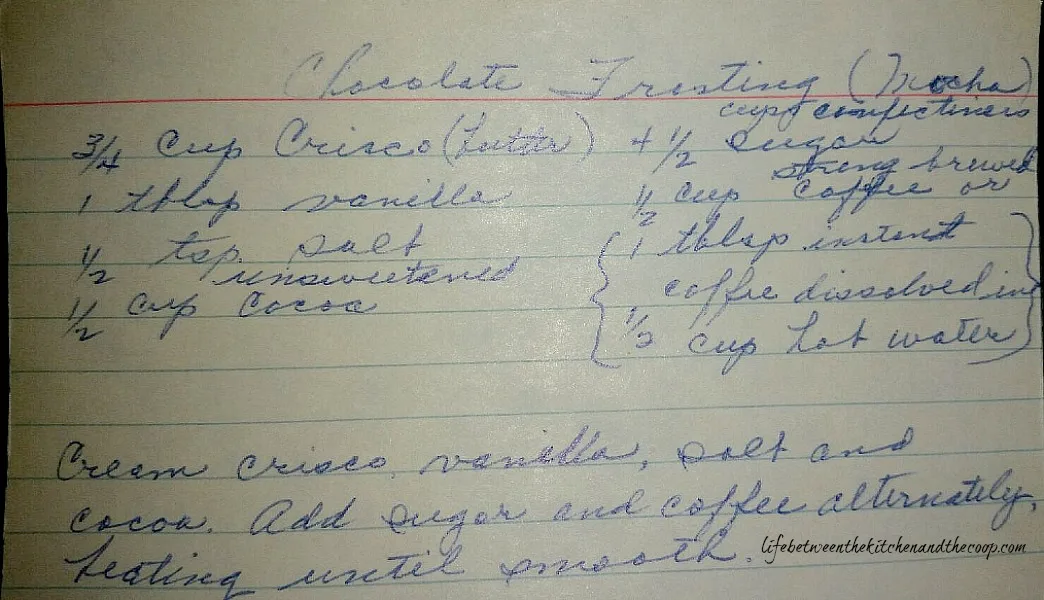 Chocolate Frosting (Mocha)
3/4 cup Crisco (butter)
1 tblsp vanilla
1/2 tsp. salt
unsweetened
1/2 cup cocoa
cups confectioners
4 1/2 sugar
strong brewed
1/2 cup coffee or
{ 1 tblsp instant
coffee dissolved in
1/2 cup hot water }
Cream crisco, vanilla, salt and
cocoa. Add sugar and coffee alternately,
beating until smooth.
lifebetweenthekitchenandthecoop.com